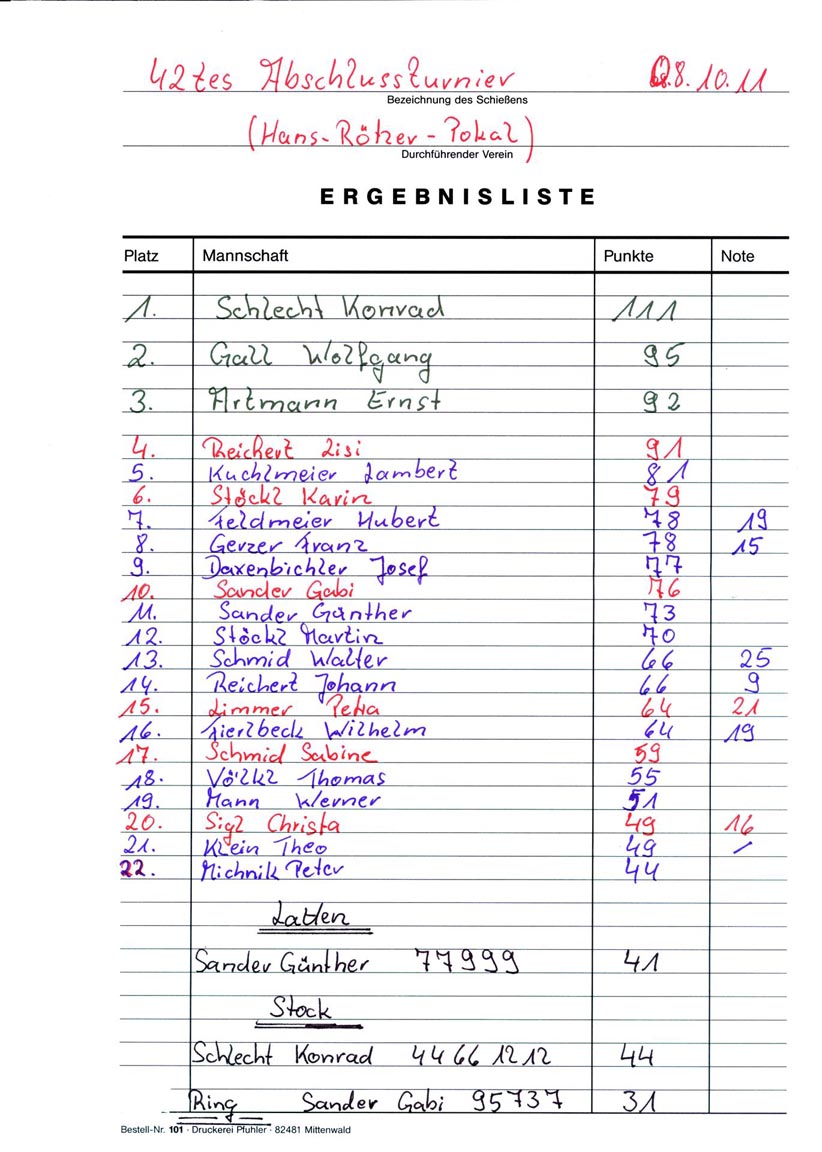 42tes Abschlussturnier 08.10.11
Bezeichnung des Schießens
(Hans-Rötzer-Pokal)
Durchführender Verein
ERGEBNISLISTE
Platz Mannschaft Punkte Note
1. Schlecht Konrad 111
2. Gall Wolfgang 95
3. Artmann Ernst 92
4. Reichert Lisi 91
5. Kuchlmeier Lambert 81
6. Stöckl Karin 79
7. Feldmeier Hubert 78 19
8. Gerzer Franz 78 15
9. Daxenbichler Josef 77
10. Sander Gabi 76
11. Sander Günther 73
12. Stöckl Martin 70
13. Schmid Walter 66 25
14. Reichert Johann 66 9
15. Limmer Petra 64 21
16. Zierlbeck Wilhelm 64 19
17. Schmid Sabine 59
18. Völkl Thomas 55
19. Mann Werner 51
20. Sigl Christa 49 16
21. Klein Theo 49 /
22. Michnik Peter 44
Latten
Sander Günther 77999 41
Stock
Schlecht Konrad 4466 12 12 44
Ring Sander Gabi 95737 31
Bestell-Nr. 101 · Druckerei Pfuhler · 82481 Mittenwald